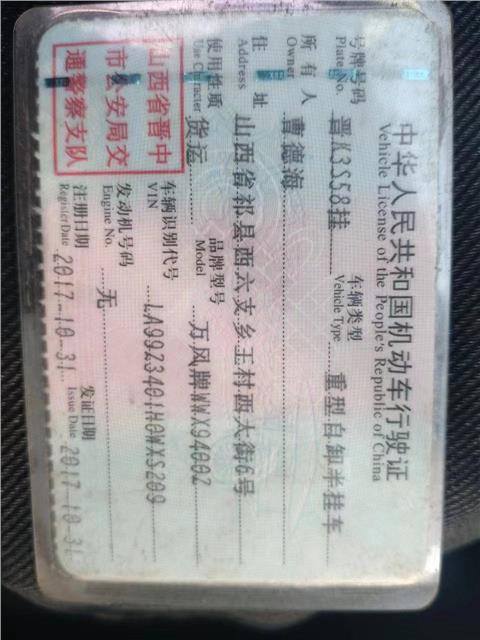 中华人民共和国机动车行驶证
Vehicle License of the People's Republic of China
号牌号码 晋K3S58挂 车辆类型 重型自卸半挂车
Plate No. Vehicle Type
所有人 曹德海
Owner
住址 山西省祁县西六支乡王村西大街6号
Address
使用性质 货运 品牌型号 万风牌WWX9400Z
Use Character Model
山西省晋中
市公安局交
通警察支队
车辆识别代号 LA99Z3401H0WXS209
VIN
发动机号码 无
Engine No.
注册日期 2017-10-31 发证日期 2017-10-31
Register Date Issue Date